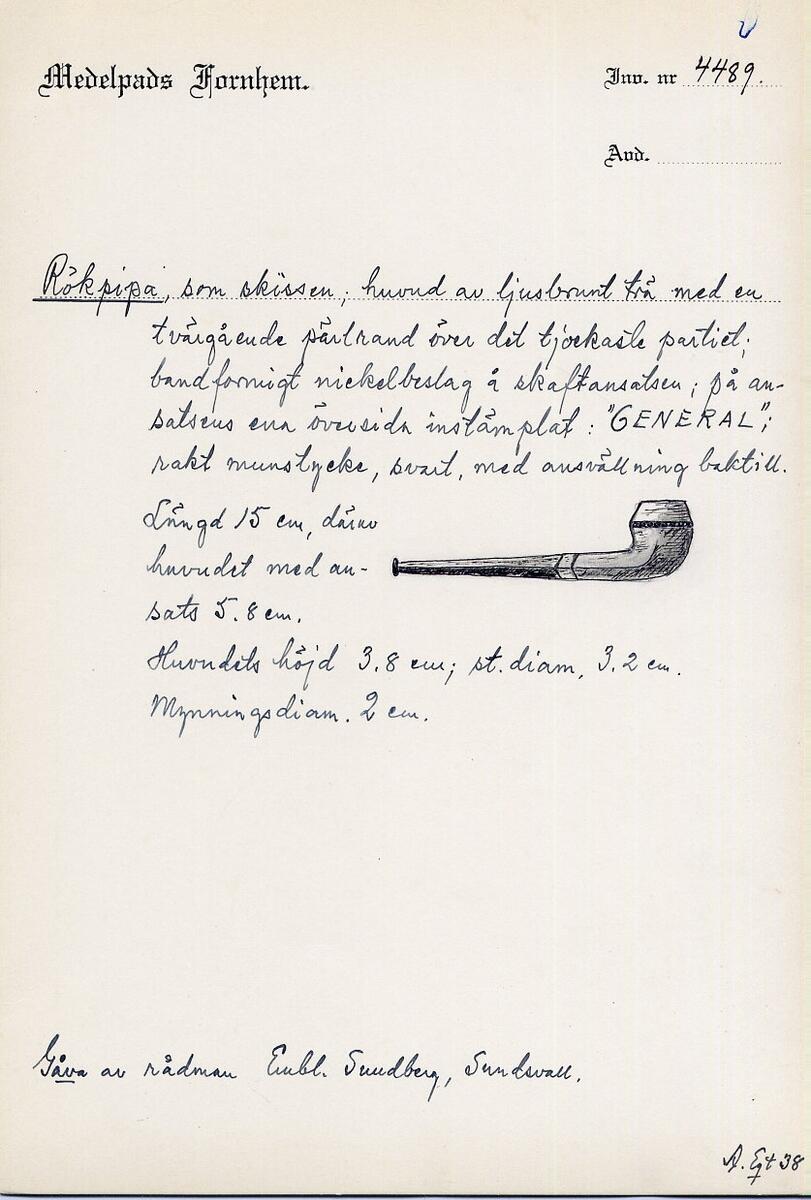 Medelpads Fornhem.
Inv. nr 4489.
Avd.
Rökpipa, som skissen; huvud av ljusbrunt trä med en
tvärgående pärlrand över det tjockaste partiet;
bandformigt nickelbeslag å skaftansatsen; på an-
satsens ena översida instämplat: "GENERAL";
rakt munstycke, svart, med ansvällning baktill.
Längd 15 cm, därav
huvudet med an-
sats 5.8 cm.
Huvudets höjd 3.8 cm; st. diam. 3.2 cm.
Mynningsdiam. 2 cm.
Gåva av rådman Sundberg, Sundsvall.
A. Egt 38